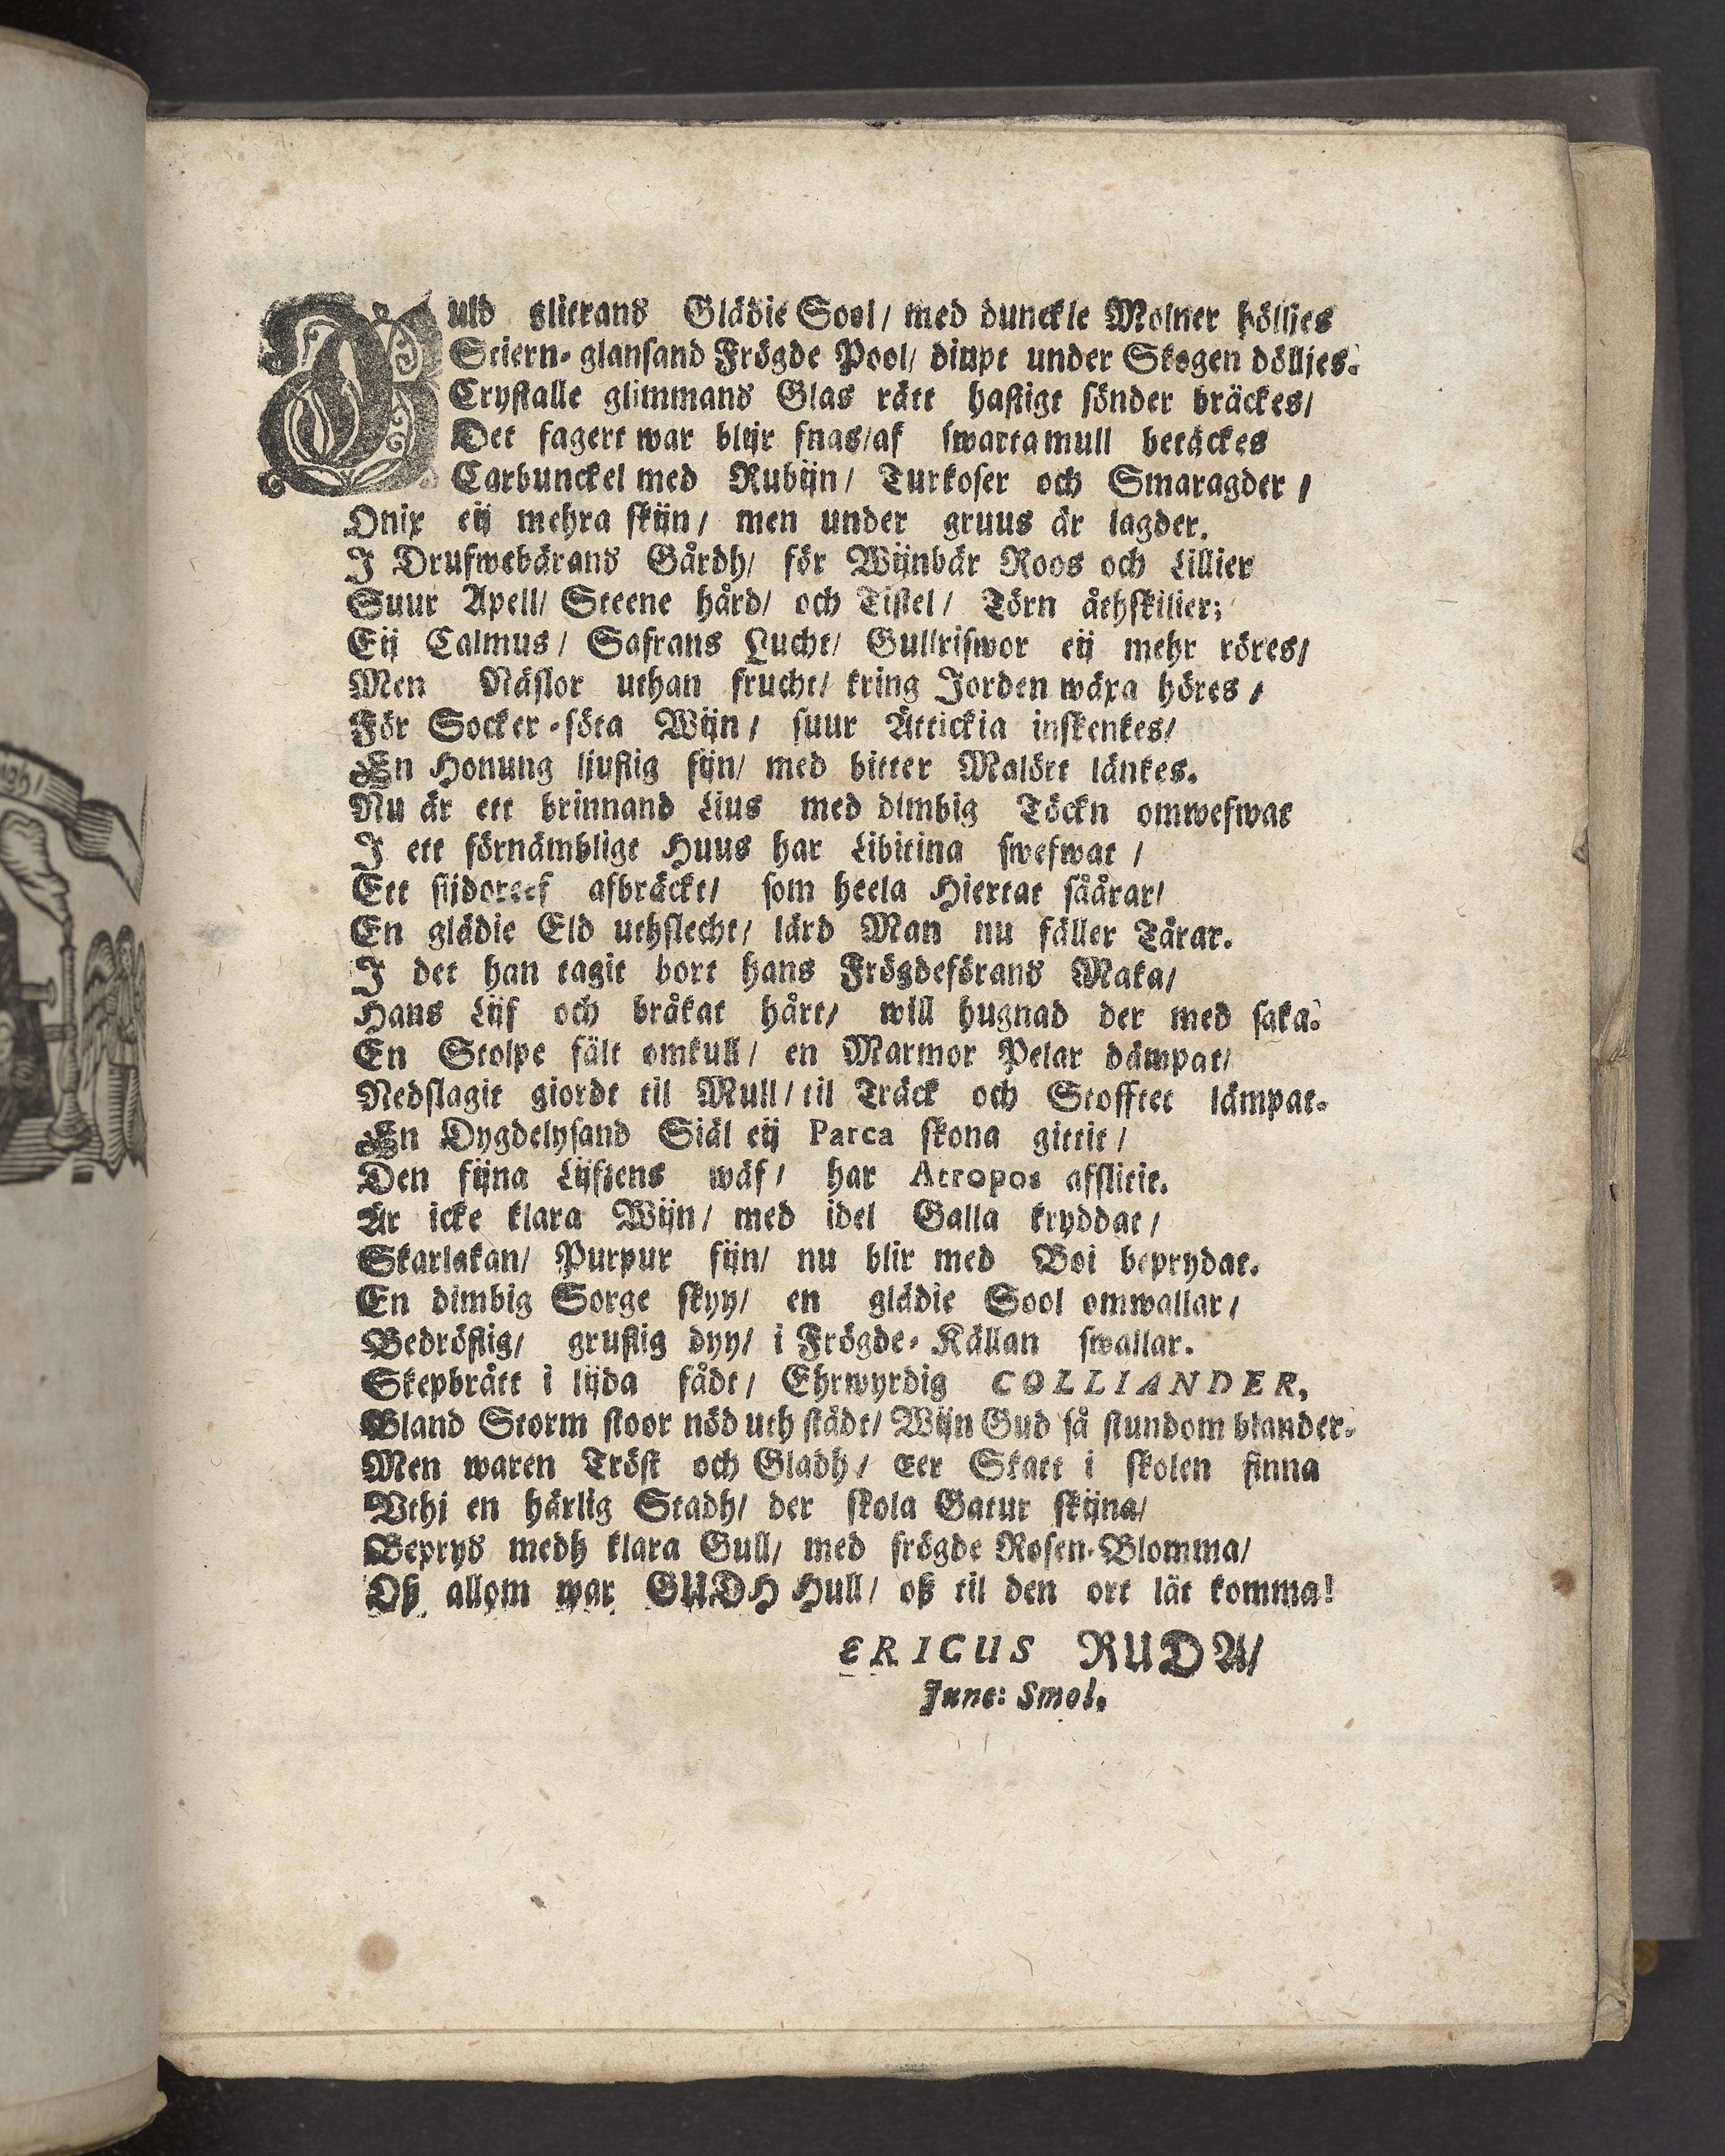 Guld glitrand Glädie Sool/ med dunckle Molner höllies
Stiern-glansand Frögde Pool/ diupt under Skogen döllies.
Crystalle glimmand Glas rätt hastigt sönder bräckes/
Det fagert war blijr snas/af swarta mull betäckes
Carbunckel med Rubijn/ Turkoser och Smaragder/
Onix eij mehra skijn/ men under gruus är lagder.
I Drufwebärand Gårdh/ för Wijnbär Roos och Lillier
Suur Apell/ Steene hård/ och Tistel/ Törn åthskilier;
Eij Calmus/ Safrans Lucht/ Gullriswor eij mehr röres/
Men Näslor uthan frucht/ kring Jorden wäxa höres/
För Socker-söta Wijn/ suur Ättickia inskenkes/
En Honung ljuflig fijn/ med bitter Malört länkes.
Nu är ett brinnand Lius med dimbig Töckn omwefwat
I ett förnämbligt Huus har Libitina swefwat/
Ett sijdoreef afbräckt/ som heela Hiertat såårar/
En glädie Eld uthslecht/ lärd Man nu fäller Tårar.
I det han tagit bort hans Frögdeförand Maka/
Hans Lijf och bråkat hårt/ will hugnad der med saka.
En Stolpe fält omkull/ en Marmor Pelar dämpat/
Nedslagit giordt til Mull/ til Träck och Stofftet lämpat.
En Dygdelysand Siäl eij Parca skona gittit/
Den fijna Lijfsens wäf/ har Atropos afslitit.
Är icke klara Wijn/ med idel Galla kryddat/
Skarlakan/ Purpur fijn/ nu blir med Boi beprydat.
En dimbig Sorge skyy/ en glädie Sool omwallar/
Bedröflig/ gruflig dyy/ i Frögde-Källan swallar.
Skepbrått i lijda fådt/ Ehrwyrdig COLLIANDER,
Bland Storm stoor nöd uth städt/ Wijn Gud så stundom blander.
Men waren Tröst och Gladh/ Eer Skatt i skolen finna
Vthi en härlig Stadh/ der skola Gatur skijna/
Bepryd medh klara Gull/ med frögde Rosen-Blomma/
Oß allom war GUDH Hull/ oß til den ort lät komma!
ERICUS RUDA/
Junc: Smol.